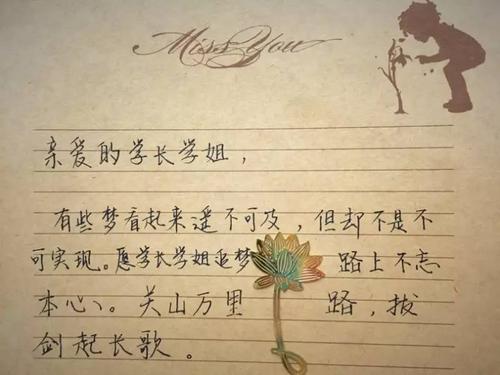 Miss You
亲爱的学长学姐，
有些梦看起来遥不可及，但却不是不
可实现。愿学长学姐追梦路上不忘
本心。关山万里路，拔
剑起长歌。